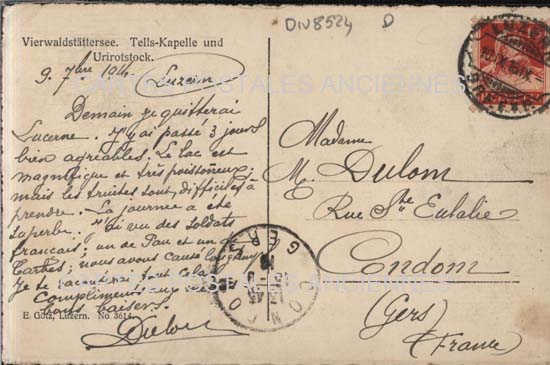 DIV8524 D
Vierwaldstättersee. Tells-Kapelle und
Urirotstock.
9. 7bre 191
Luzern
CARTES POSTALES ANCIENNES
Demain je quitterai
Lucerne. J'y ai passé 3 jours
bien agréables. Le lac est
magnifique et très poissonneux,
mais les truites sont difficiles à
prendre. La journée a été
superbe. J'ai vu des soldats
français; un de Pau et un de
Tarbes; nous avons causé longuement
Je te raconterai tout cela.
Compliments aux
bons baisers.
Dulom
E. Götz, Luzern. No. 3614.
Madame
M. Dulom
Rue Ste Eulalie
Condom
(Gers)
(France)
CONDOM
GERS
CARTES POSTALES ANCIENNES